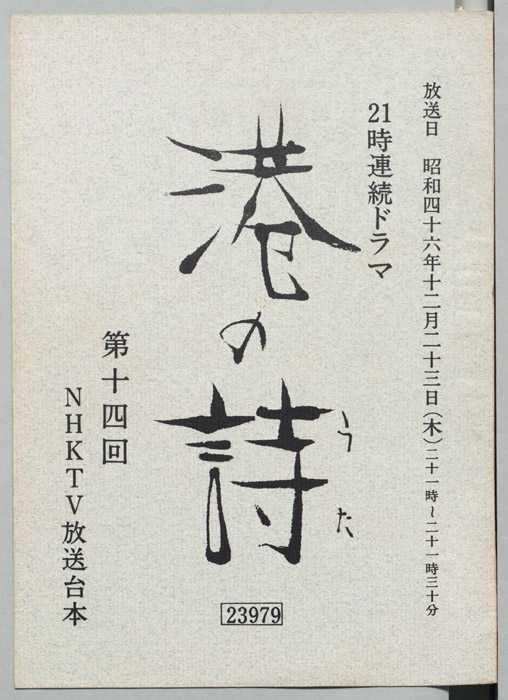 放送日　昭和四十六年十二月二十三日（木）二十一時～二十一時三十分
21時連続ドラマ
港の詩
うた
第十四回
NHKTV放送台本
23979